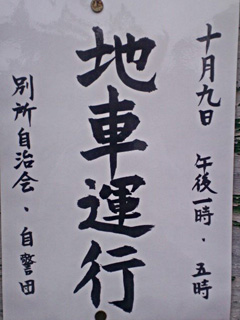 十月九日 午後一時・五時
地車運行
別所自治会・自警団